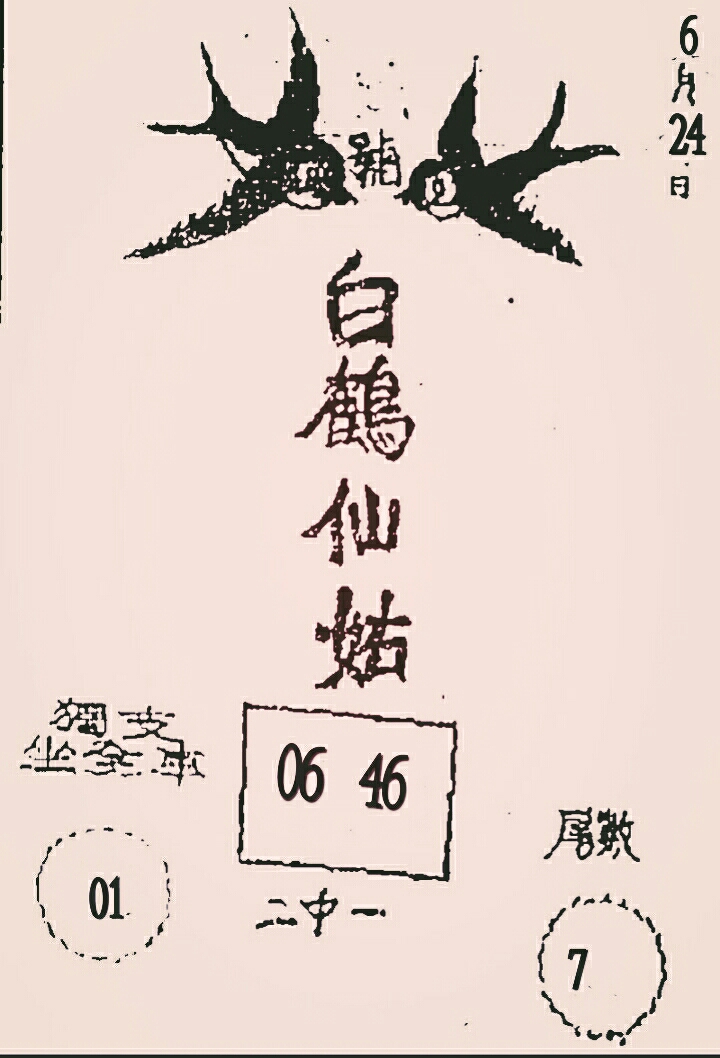 6
月
24
日
號
白
鶴
仙
姑
獨支
坐全車
06 46
二中一
01
尾數
7